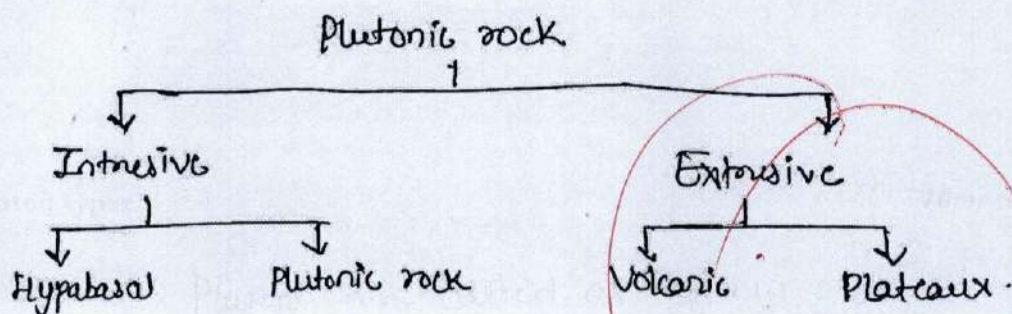 Plutonic rock
Intrusive Extrusive
Hypabasal Plutonic rock Volcanic Plateaux.